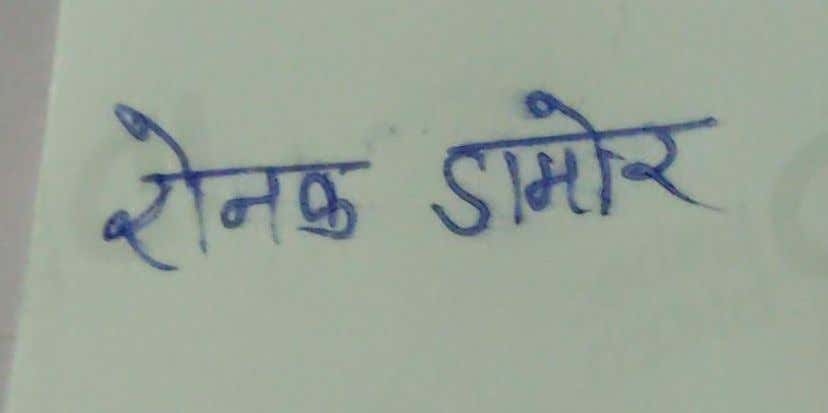 रोनक डामोर